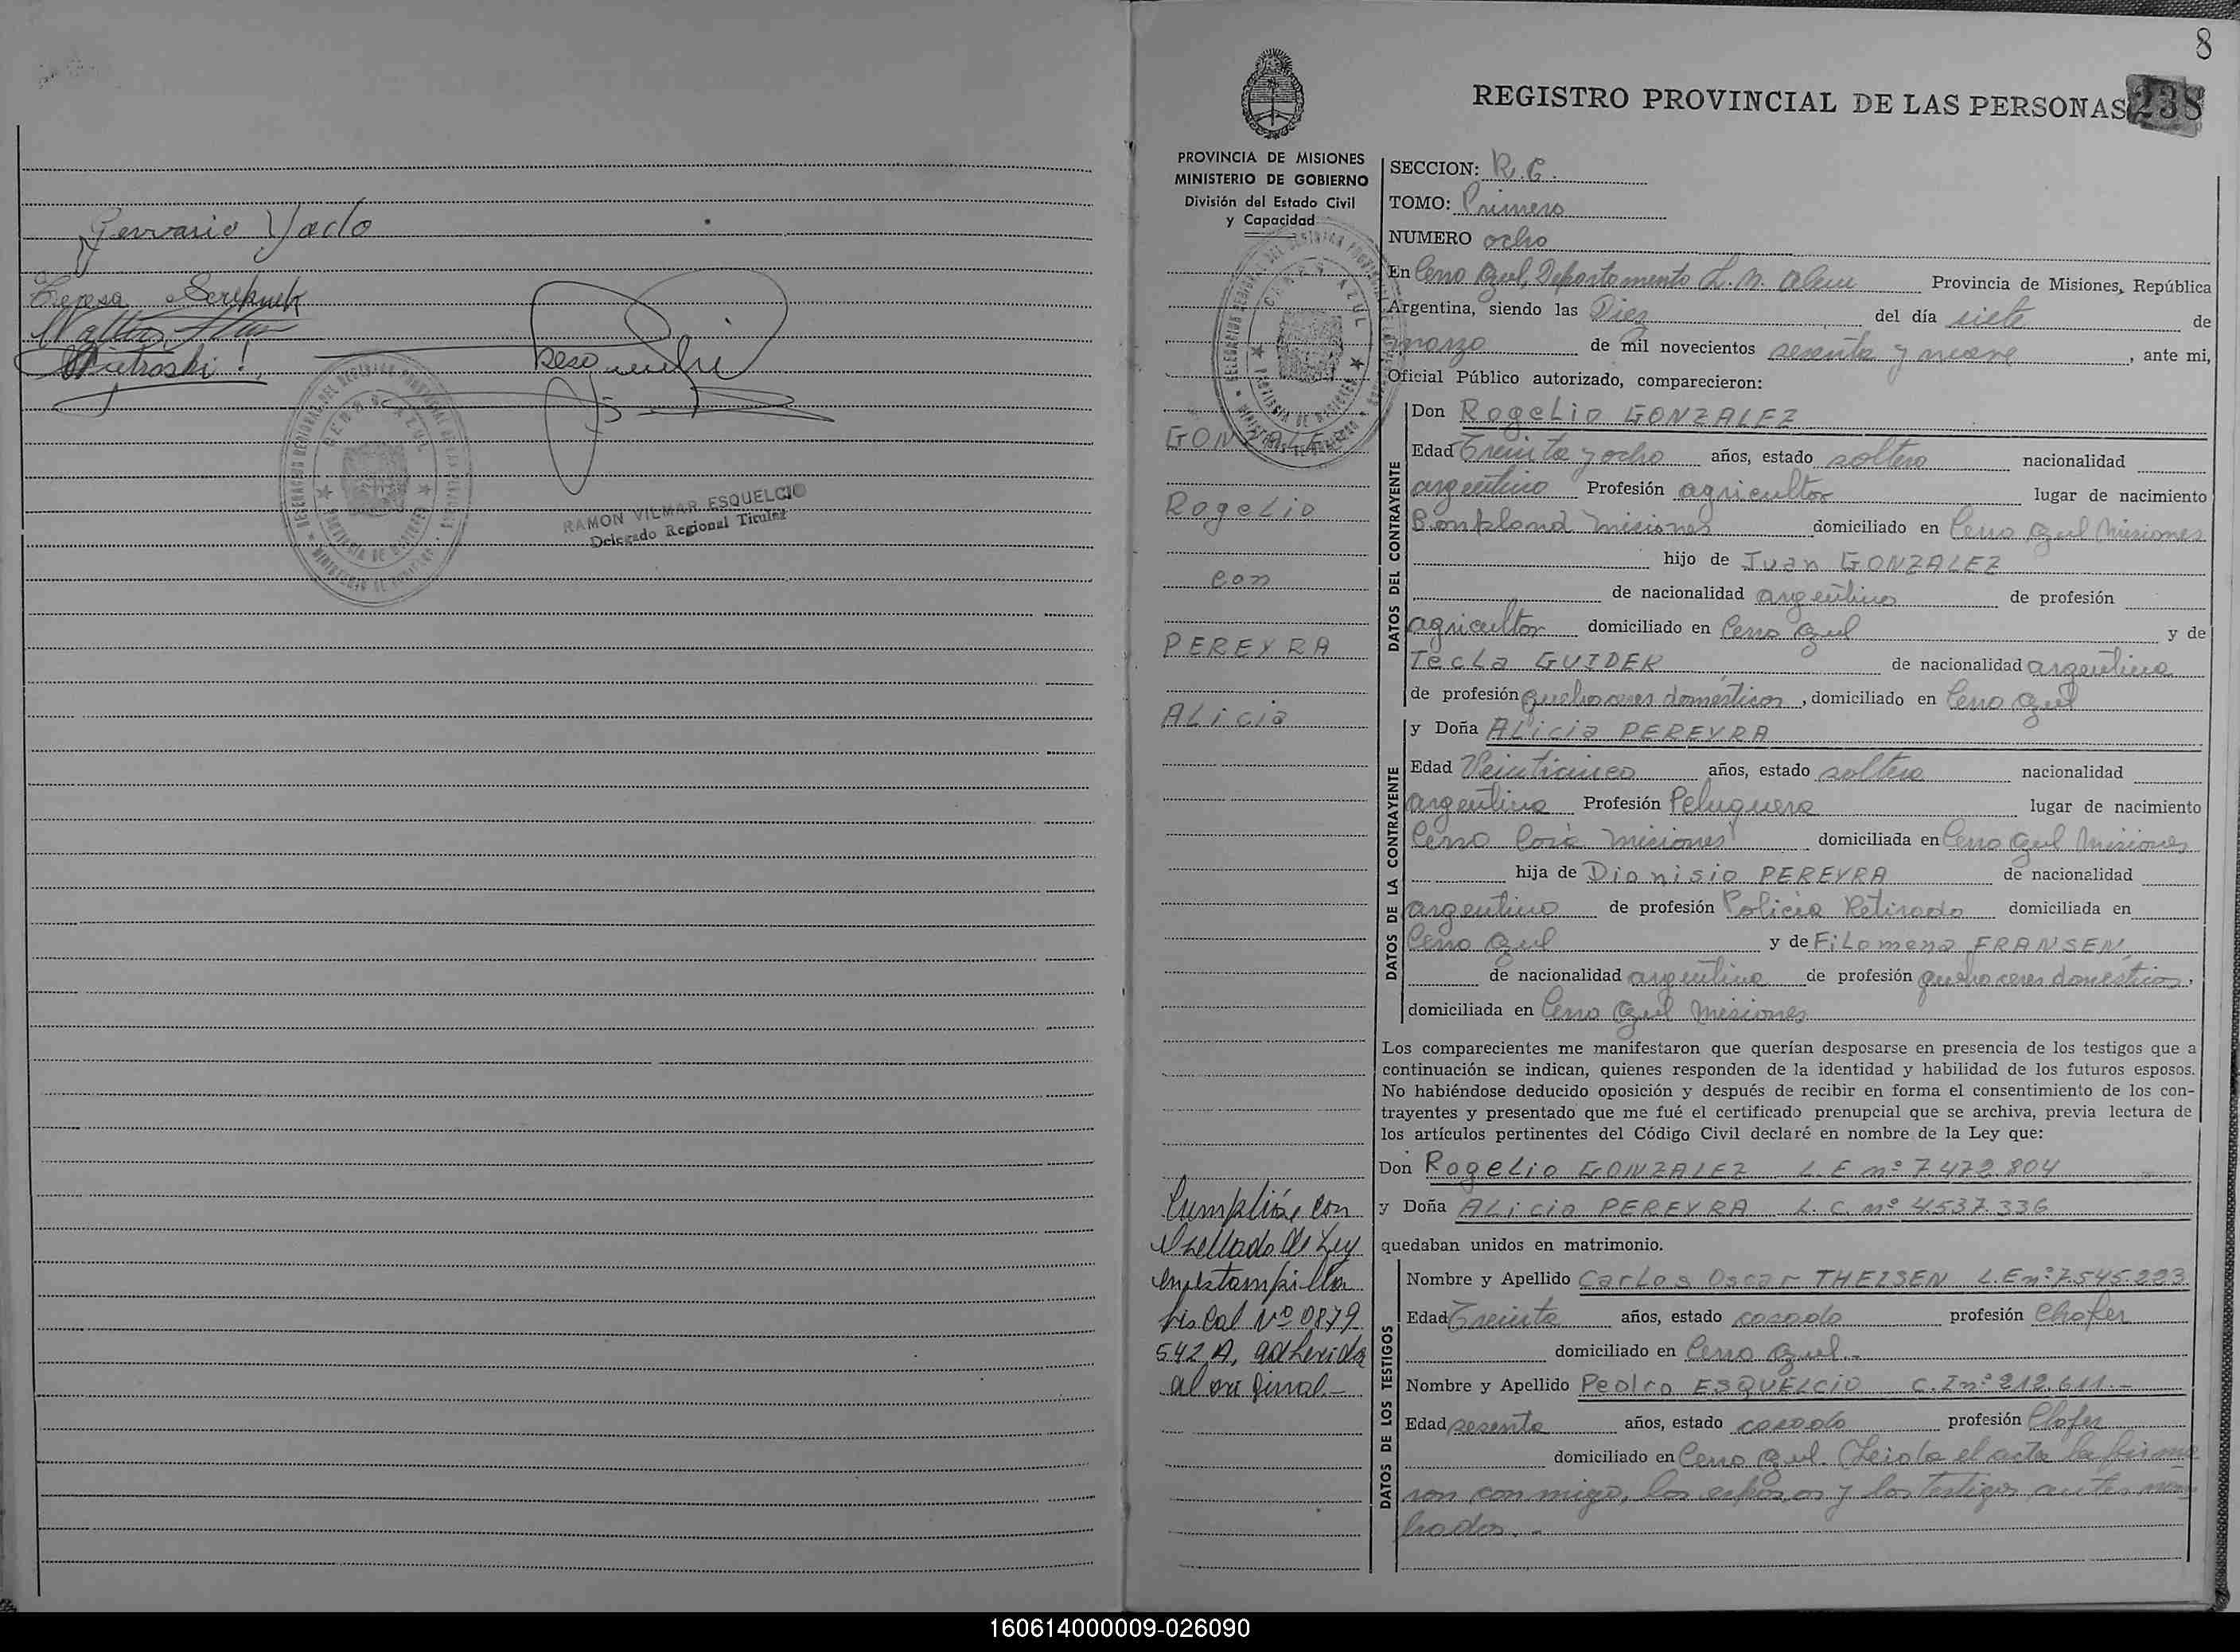 Gervasio Yado
Teresa
RAMON VILMAR ESQUELCIO
Delegado Regional Titular
8
REGISTRO PROVINCIAL DE LAS PERSONAS 238
PROVINCIA DE MISIONES
MINISTERIO DE GOBIERNO
División del Estado Civil
y Capacidad
GONZALEZ
Rogelio
con
PEREYRA
Alicia
Cumplióse con
Sellado de Ley
en estampilla
fiscal Nº 0879
542 A, adherida
al original.-
SECCION: R.C.
TOMO: Primero
NUMERO ocho
En Cerro Azul, Departamento L. N. Alem Provincia de Misiones, República
Argentina, siendo las Diez del día siete de
marzo de mil novecientos sesenta y nueve, ante mi,
Oficial Público autorizado, comparecieron:
DATOS DEL CONTRAYENTE
Don Rogelio GONZALEZ
Edad Treinta y ocho años, estado soltero nacionalidad
argentino Profesión agricultor lugar de nacimiento
Bonpland Misiones domiciliado en Cerro Azul Misiones
hijo de Juan GONZALEZ
de nacionalidad argentino de profesión
agricultor domiciliado en Cerro Azul y de
Tecla GUIDER de nacionalidad argentina
de profesión quehaceres domésticos, domiciliado en Cerro Azul
DATOS DE LA CONTRAYENTE
y Doña Alicia PEREYRA
Edad Veinticinco años, estado soltera nacionalidad
argentina Profesión Peluquera lugar de nacimiento
Cerro Corá Misiones domiciliada en Cerro Azul Misiones
hija de Dionisio PEREYRA de nacionalidad
argentino de profesión Policía Retirado domiciliada en
Cerro Azul y de Filomena FRANSEN,
de nacionalidad argentina de profesión quehaceres domésticos,
domiciliada en Cerro Azul Misiones
Los comparecientes me manifestaron que querían desposarse en presencia de los testigos que a
continuación se indican, quienes responden de la identidad y habilidad de los futuros esposos.
No habiéndose deducido oposición y después de recibir en forma el consentimiento de los con-
trayentes y presentado que me fué el certificado prenupcial que se archiva, previa lectura de
los artículos pertinentes del Código Civil declaré en nombre de la Ley que:
Don Rogelio GONZALEZ L.E nº 7.472.804
y Doña Alicia PEREYRA L. C. nº 4.537.336
quedaban unidos en matrimonio.
DATOS DE LOS TESTIGOS
Nombre y Apellido Carlos Oscar THEISEN L.E nº 7.545.293
Edad Treinta años, estado casado profesión Chofer
domiciliado en Cerro Azul.-
Nombre y Apellido Pedro ESQUELCIO C.I nº 212.611.-
Edad sesenta años, estado casado profesión Chofer
domiciliado en Cerro Azul. Leida el acta la firma
ron conmigo, los esposos y los testigos antes nom
brados.-
160614000009-026090